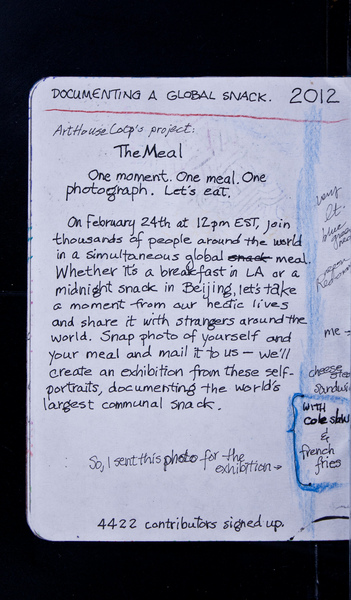 DOCUMENTING A GLOBAL SNACK. 2012
ArtHouse Coop's project:
The Meal
One moment. One meal. One
photograph. Let's eat.
On February 24th at 12pm EST, join
thousands of people around the world
in a simultaneous global snack meal.
Whether it's a breakfast in LA or a
midnight snack in Beijing, let's take
a moment from our hectic lives
and share it with strangers around the
world. Snap photo of yourself and
your meal and mail it to us — we'll
create an exhibition from these self-
portraits, documenting the world's
largest communal snack.
So, I sent this photo for the
exhibition →
4422 contributors signed up.
very
lt.
blue
me
cheese
WITH
cole slaw
&
french
fries